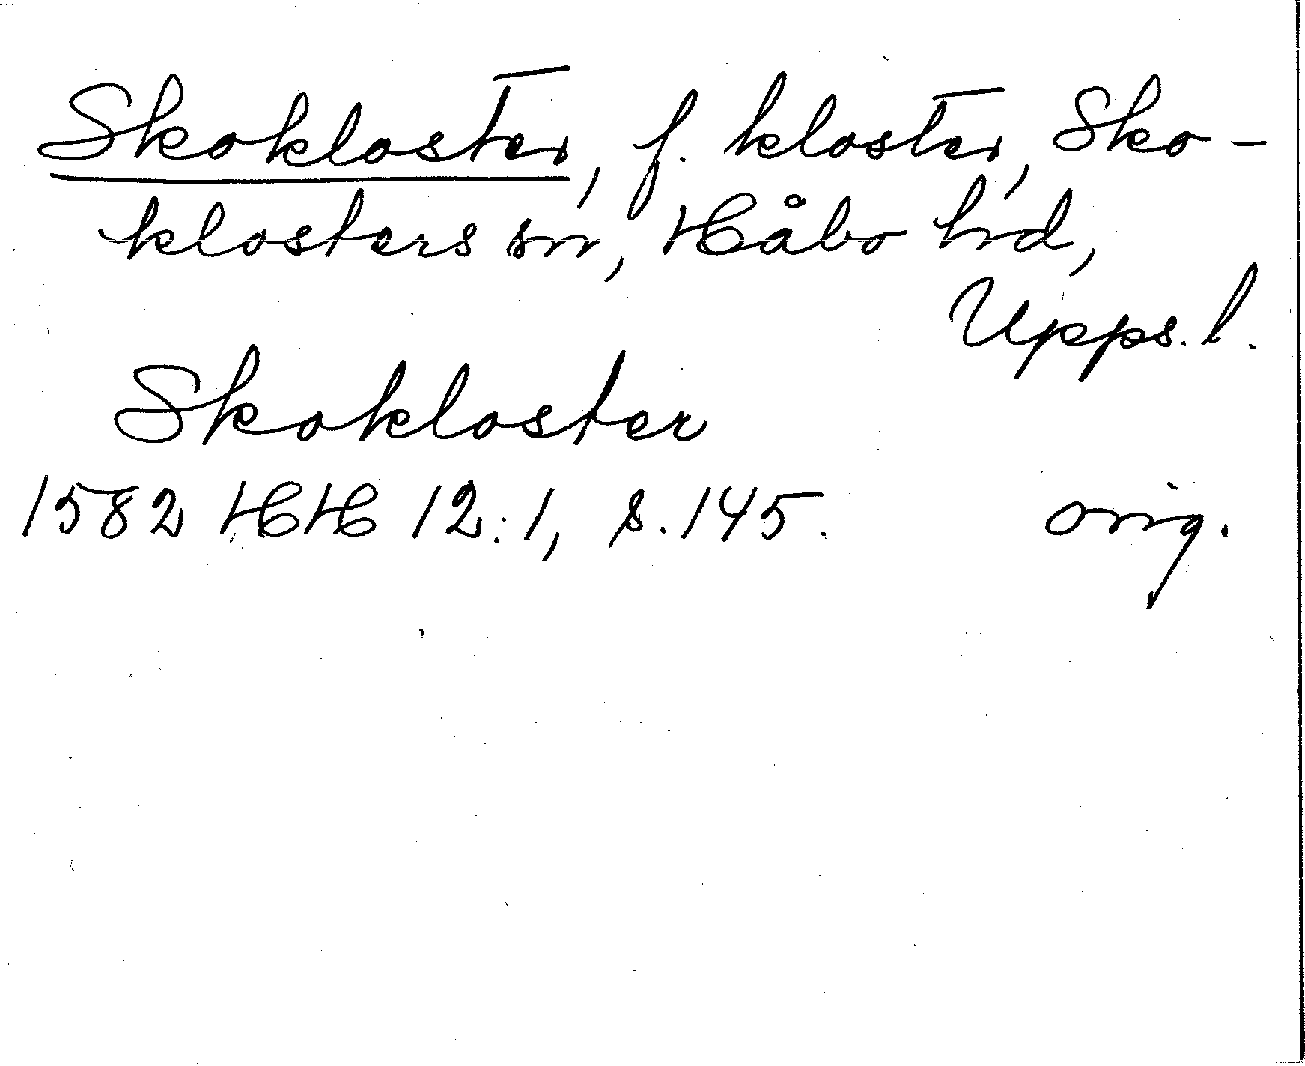 Skokloster, f. kloster, Sko-
klosters sn, Håbo hd,
Upps. l.
Skokloster
1582 HH 12:1, s. 145. orig.